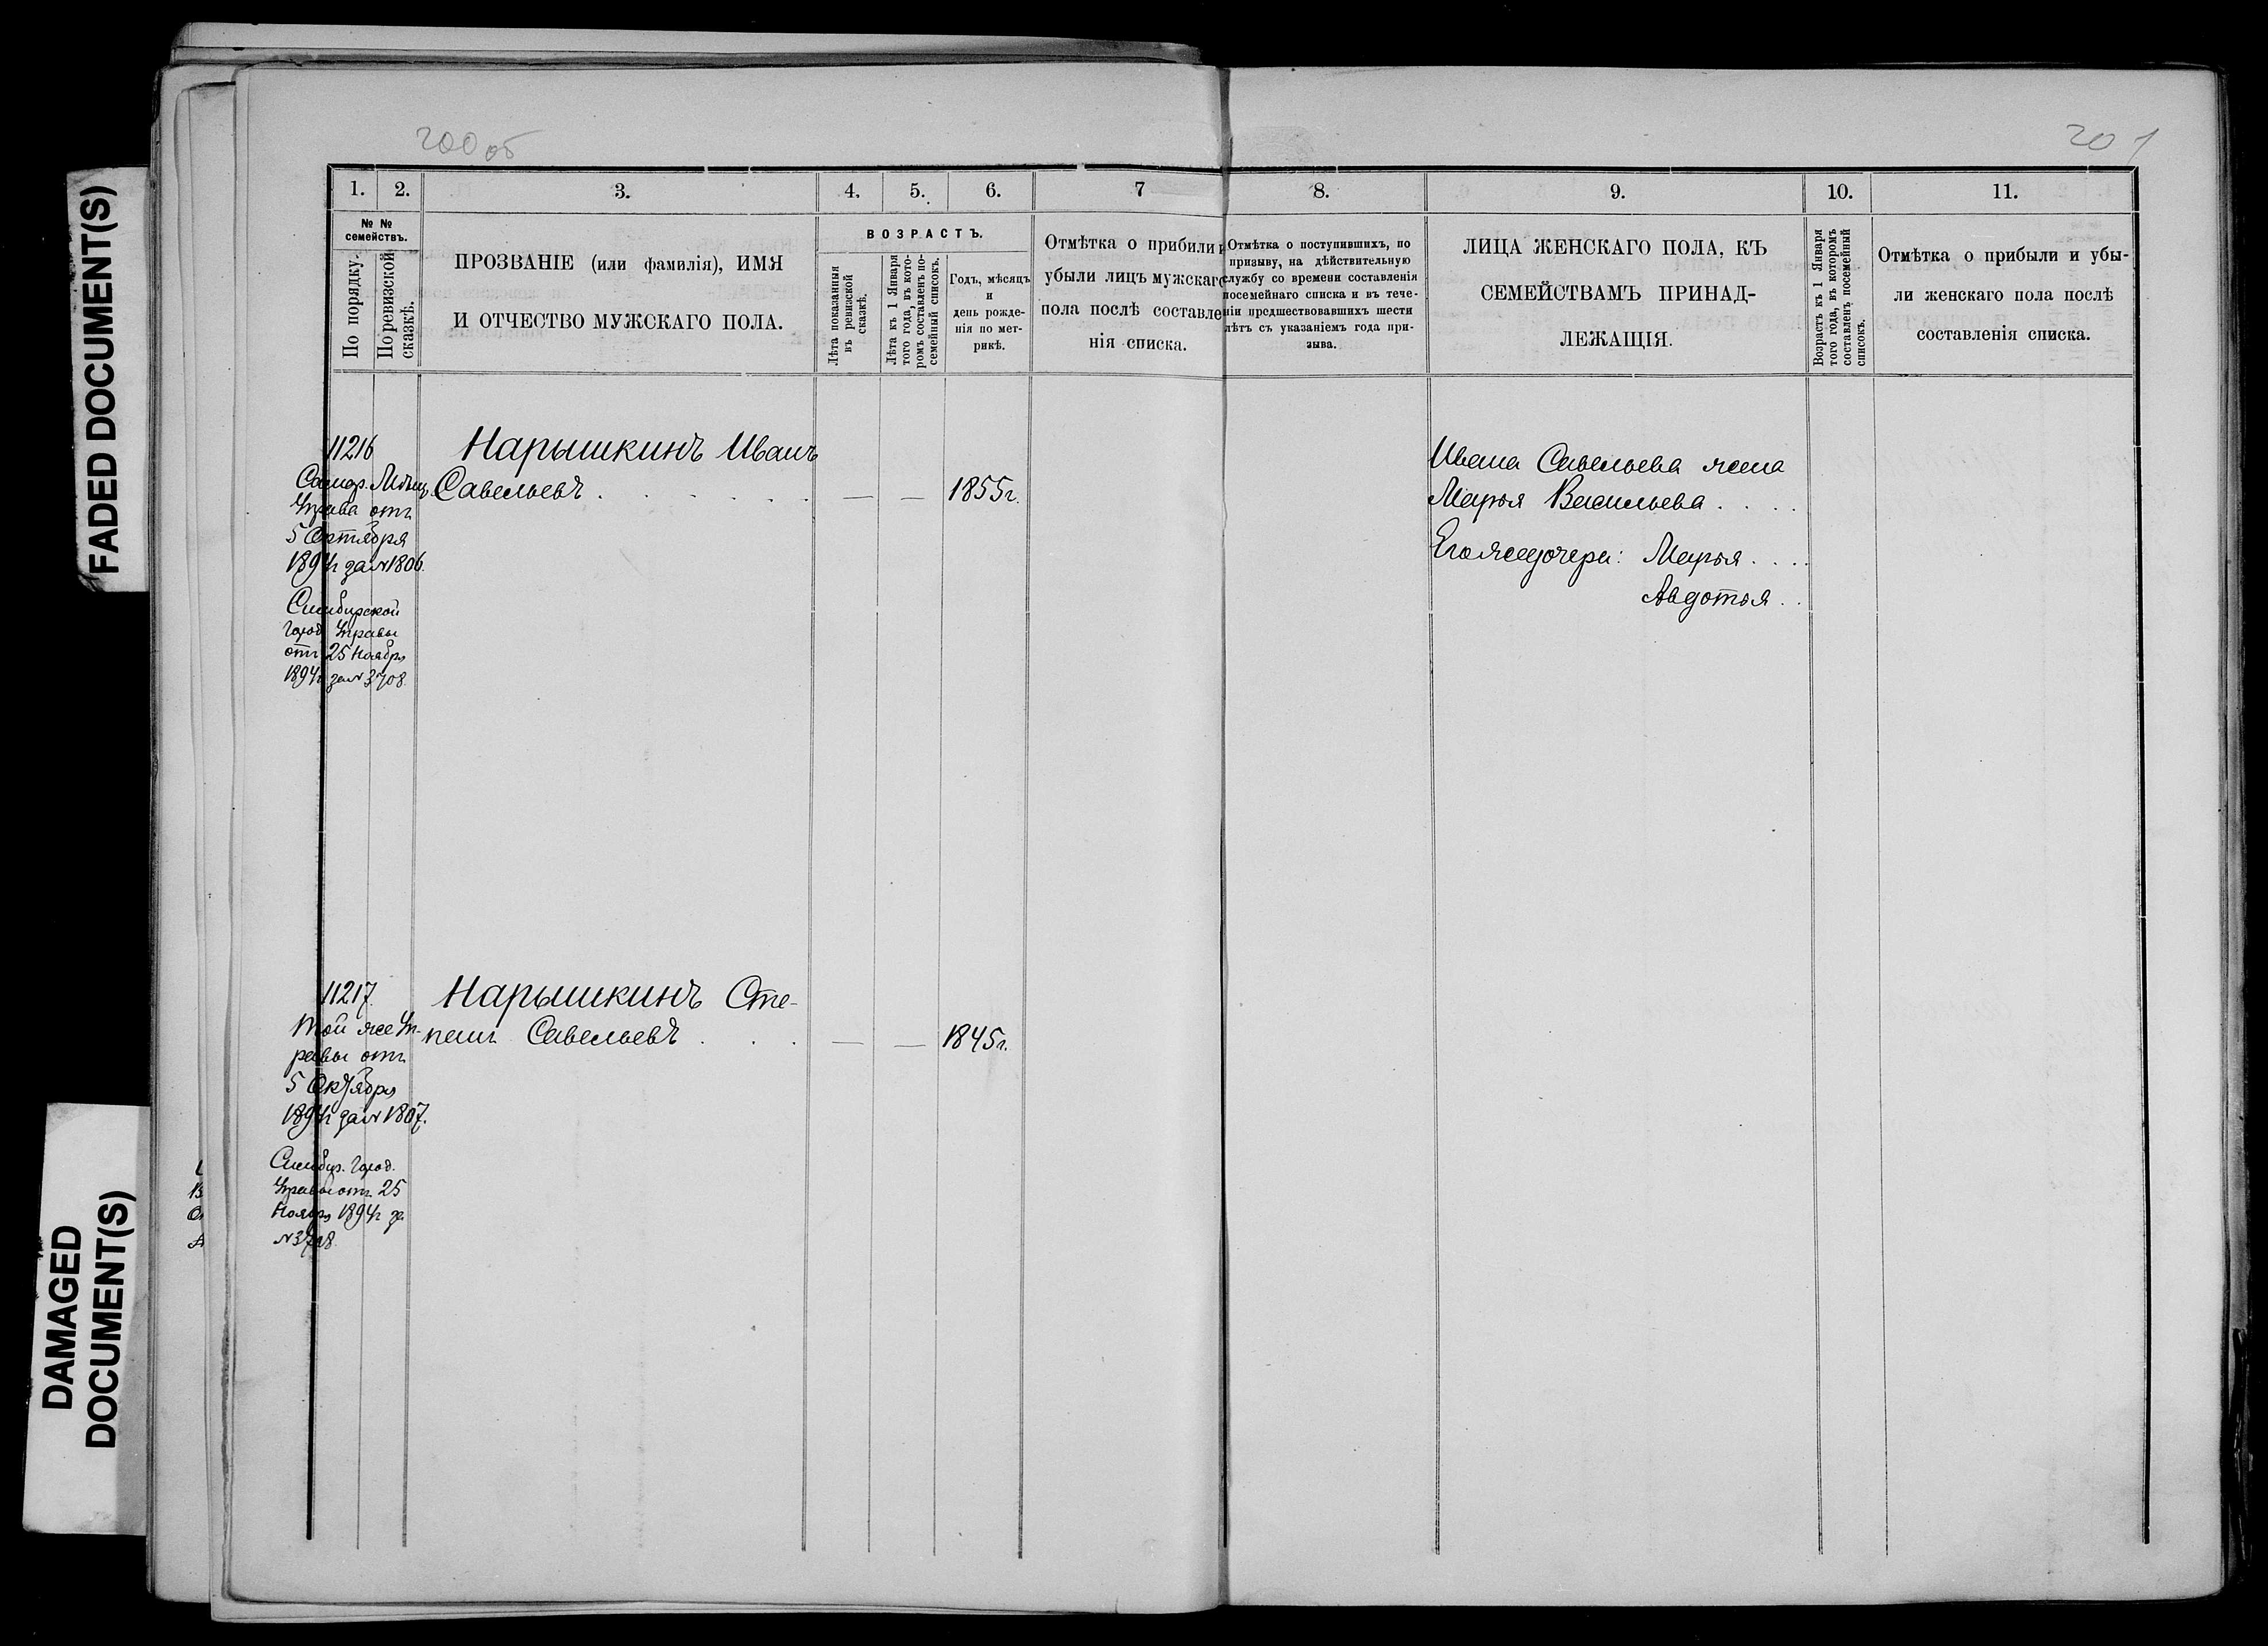 FADED DOCUMENT(S)
DAMAGED
DOCUMENT(S)
200 об
201
1. 2. 3. 4. 5. 6. 7 8. 9. 10. 11.
№ №
семействъ.
По порядку.
По ревизской
сказкѣ.
ПРОЗВАНІЕ (или фамилія), ИМЯ
И ОТЧЕСТВО МУЖСКАГО ПОЛА.
ВОЗРАСТЪ.
Лѣта показанныя
въ ревизской
сказкѣ.
Лѣта къ 1 Января
того года, въ кото-
ромъ составленъ по-
семейный списокъ.
Годъ, мѣсяцъ
и
день рожде-
нія по мет-
рикѣ.
Отмѣтка о прибыли и
убыли лицъ мужскаго
пола послѣ составле-
нія списка.
Отмѣтка о поступившихъ, по
призыву, на дѣйствительную
службу со времени составленія
посемейнаго списка и въ тече-
ніи предшествовавшихъ шести
лѣтъ съ указаніемъ года при-
зыва.
ЛИЦА ЖЕНСКАГО ПОЛА, КЪ
СЕМЕЙСТВАМЪ ПРИНАД-
ЛЕЖАЩІЯ.
Возрастъ къ 1 Января
того года, въ которомъ
составленъ посемейный
списокъ.
Отмѣтка о прибыли и убы-
ли женскаго пола послѣ
составленія списка.
11216
Самар. Мѣщ.
Управа отъ
5 Октября
1894г за № 1806.
Симбирской
Город. Управы
отъ 25 Ноября
1894г за № 3708.
Нарышкинъ Иванъ
Савельевъ . . . . . . . — — 1855г.
Ивана Савельева жена
Марья Васильева . . . .
Его же дочери: Марья . . . .
Авдотья . .
11217.
Той же Уп-
равы отъ
5 Октября
1894г за № 1807.
Симбир. Город.
Управы отъ 25
Ноября 1894г за
№ 3708.
Нарышкинъ Сте-
панъ Савельевъ . . . — — 1845г.